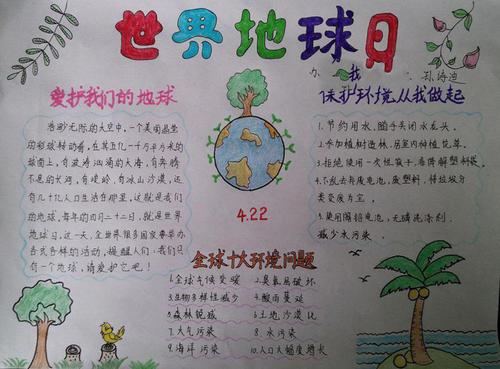 世界地球日
爱护我们的地球
浩渺无际的太空中，一个美丽晶莹
的彩球转动着，在其五亿一千万平方米的
球面上，有波涛汹涌的大海，有奔腾
不息的长河，有峻岭，有冰山沙漠，还
有几十亿人口生活在那里，这就是我们
的地球，每年的四月二十二日，就是世界
地球日，这一天，全世界很多国家要举办
各式各样的活动，提醒人们：我们只
有一个地球，请爱护它吧！
4.22
保护环境从我做起
1.节约用水，随手关闭水龙头。
2.参加植树造林，居室内种植花草。
3.拒绝使用一次性筷子，慎用塑料袋。
4.不乱丢弃废电池，废塑料，将垃圾分
类变废为宝。
5.使用无磷洗涤剂，
减少水污染。
全球十大环境问题
1.全球气候变暖
2.臭氧层破坏
3.生物多样性减少
4.酸雨蔓延
5.森林锐减
6.土地沙漠化
7.大气污染
8.水污染
9.海洋污染
10.人口大幅度增长